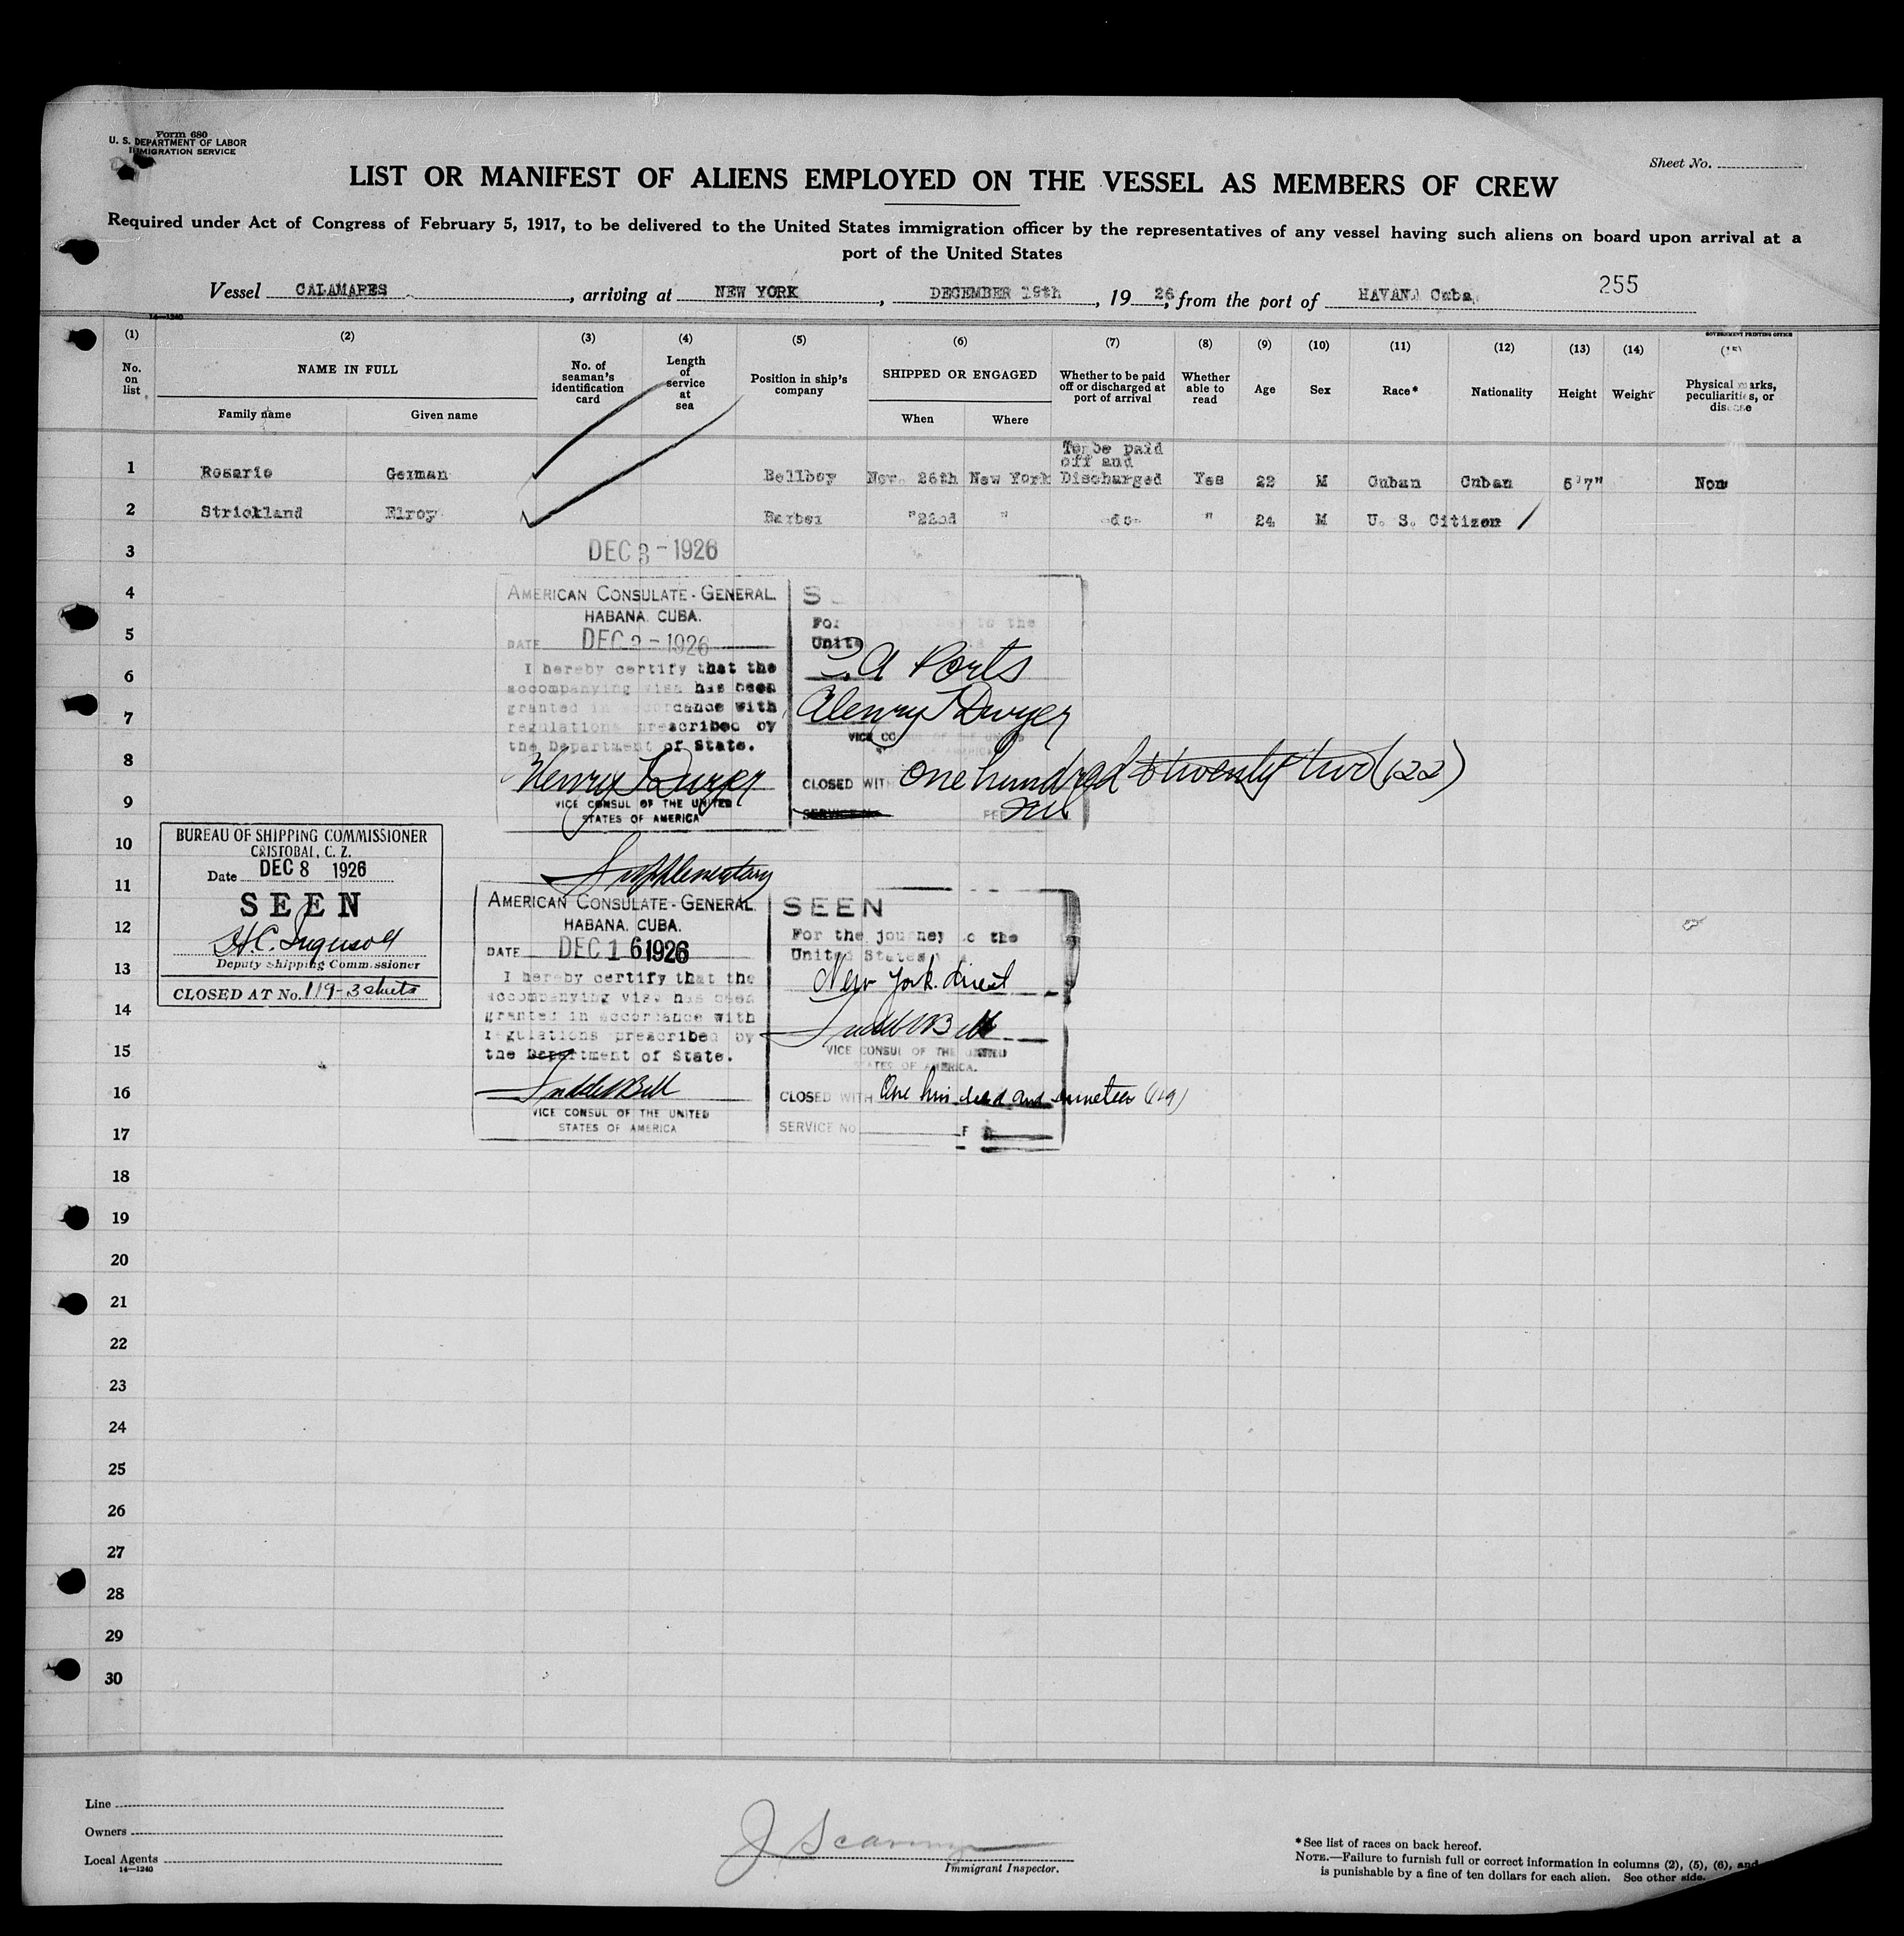 Form 680
U. S. DEPARTMENT OF LABOR
IMMIGRATION SERVICE
Sheet No.
LIST OR MANIFEST OF ALIENS EMPLOYED ON THE VESSEL AS MEMBERS OF CREW
Required under Act of Congress of February 5, 1917, to be delivered to the United States immigration officer by the representatives of any vessel having such aliens on board upon arrival at a
port of the United States
255
Vessel CALAMARES, arriving at NEW YORK, DECEMBER 19th, 19 26, from the port of HAVANA Cuba
14—1240
GOVERNMENT PRINTING OFFICE
(1) (2) (3) (4) (5) (6) (7) (8) (9) (10) (11) (12) (13) (14) (15)
No. on list
NAME IN FULL
Family name Given name
No. of seaman's identification card
Length of service at sea
Position in ship's company
SHIPPED OR ENGAGED
When Where
Whether to be paid off or discharged at port of arrival
Whether able to read
Age
Sex
Race*
Nationality
Height
Weight
Physical marks, peculiarities, or disease
1 Rosario German Bellboy Nov. 26th New York To be paid off and Discharged Yes 22 M Cuban Cuban 5'7" Non
2 Strickland Elroy Barber "22nd " -do- " 24 M U. S. Citizen
3
DEC 3 - 1926
4
5
6
7
8
9
10
11
12
13
14
15
16
17
18
19
20
21
22
23
24
25
26
27
28
29
30
AMERICAN CONSULATE-GENERAL.
HABANA. CUBA.
DATE DEC 3 - 1926
I hereby certify that the
accompanying visa has been
granted in accordance with
regulations prescribed by
the Department of State.
Henry T Dwyer
VICE CONSUL OF THE UNITED
STATES OF AMERICA
SEEN
For the journey to the
United
C.A Ports
Henry T Dwyer
VICE CONSUL OF THE UNITED
STATES OF AMERICA
CLOSED WITH One hundred & twenty two (122)
SERVICE No. FEE
BUREAU OF SHIPPING COMMISSIONER
CRISTOBAL, C. Z.
Date DEC 8 1926
SEEN
H.C. Ingersoll
Deputy Shipping Commissioner
CLOSED AT No. 119-3 sheets
Supplementary
AMERICAN CONSULATE-GENERAL.
HABANA. CUBA.
DATE DEC 16 1926
I hereby certify that the
accompanying visa has been
granted in accordance with
regulations prescribed by
the Department of State.
VICE CONSUL OF THE UNITED
STATES OF AMERICA
SEEN
For the journey to the
United States
New York direct
VICE CONSUL OF THE UNITED
STATES OF AMERICA.
CLOSED WITH One hundred and nineteen (119)
SERVICE NO
Line
Owners
Local Agents
14—1240
Immigrant Inspector.
*See list of races on back hereof.
NOTE.—Failure to furnish full or correct information in columns (2), (5), (6), and
is punishable by a fine of ten dollars for each alien. See other side.